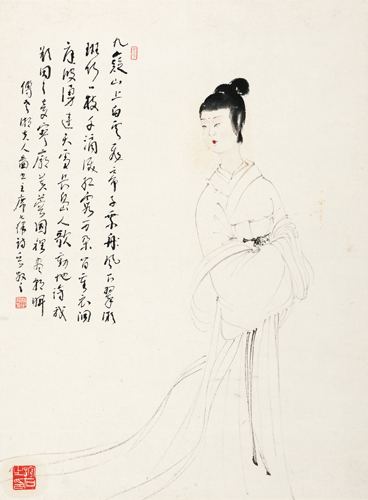 九嶷山上白雲飛帝子乘風下翠微
斑竹一枝千滴淚紅霞萬朵百重衣洞
庭波湧連天雪長島人歌動地詩我
欲因之夢寥廓芙蓉國裡盡朝暉
湘夫人畫主席七律詩